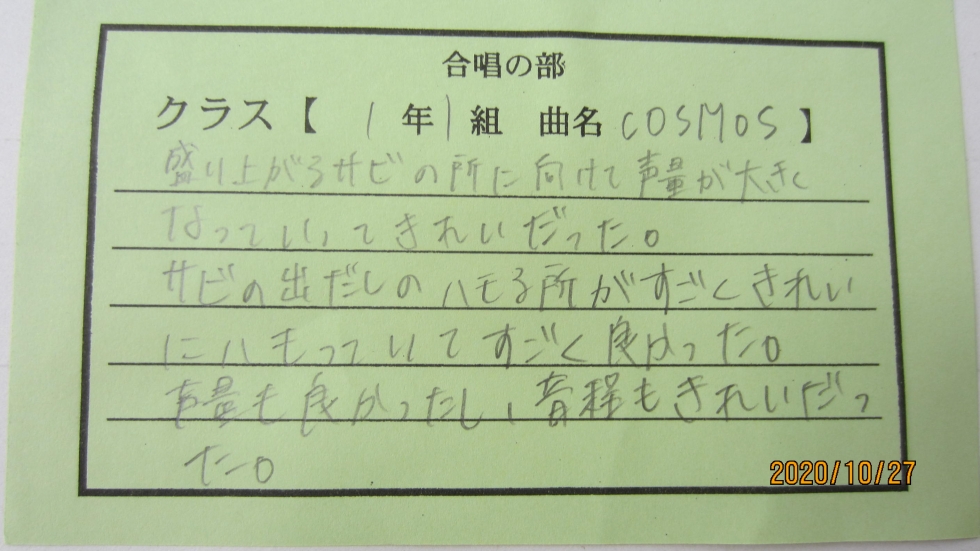 合唱の部
クラス【 1年1組 曲名 COSMOS 】
盛り上がるサビの所に向けて声量が大きく
なっていってきれいだった。
サビの出だしのハモる所がすごくきれい
にハモっていてすごく良かった。
声量も良かったし、音程もきれいだっ
た。
2020/10/27